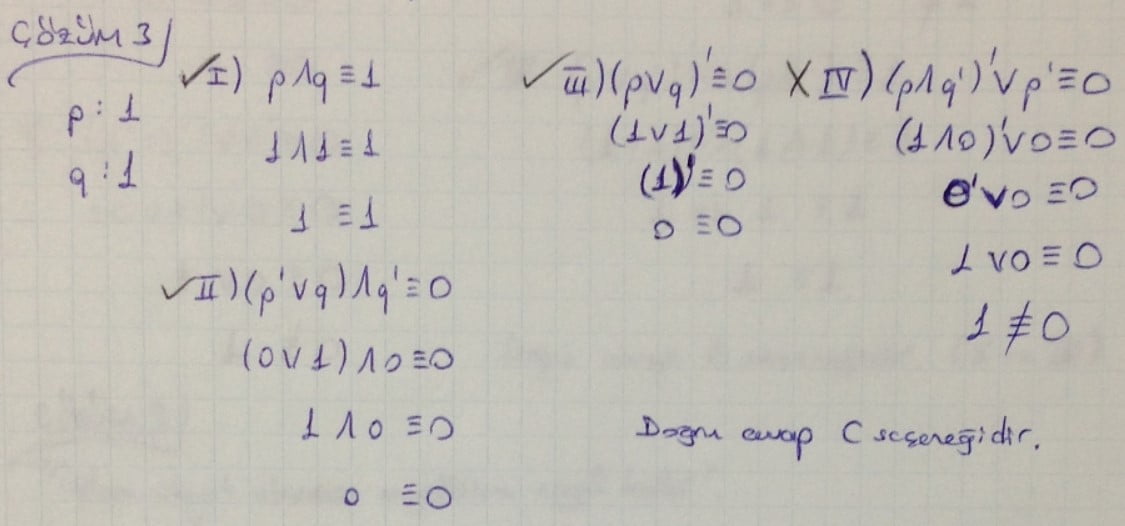 ÇÖZÜM 3
p : 1
q : 1
✓ I) p∧q ≡ 1
1∧1 ≡ 1
1 ≡ 1
✓ II) (p'∨q)∧q' ≡ 0
(0∨1)∧0 ≡ 0
1∧0 ≡ 0
0 ≡ 0
✓ III) (p∨q)' ≡ 0
(1∨1)' ≡ 0
(1)' ≡ 0
0 ≡ 0
X IV) (p∧q')'∨p' ≡ 0
(1∧0)'∨0 ≡ 0
0'∨0 ≡ 0
1∨0 ≡ 0
1 ≢ 0
Doğru cevap C seçeneğidir.